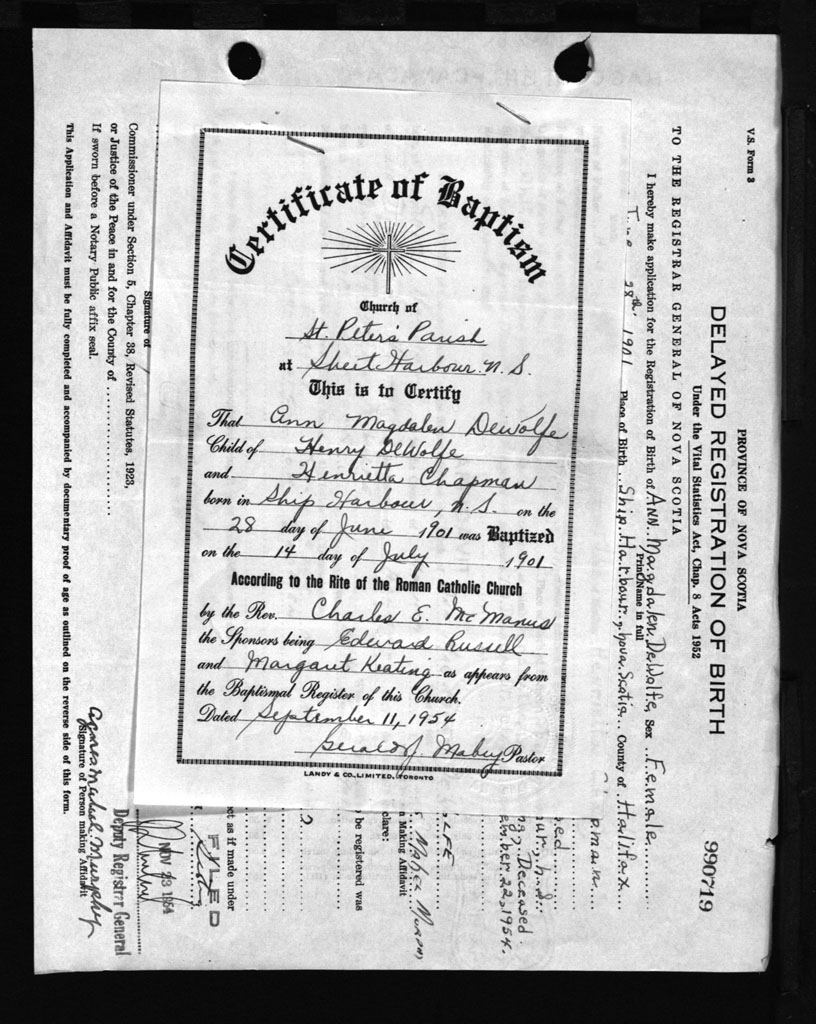 Certificate of Baptism
Church of
St. Peter's Parish
at Sheet Harbour N.S.
This is to Certify
That Ann Magdalen DeWolfe
Child of Henry DeWolfe
and Henrietta Chapman
born in Ship Harbour, N.S. on the
28 day of June 1901 was Baptized
on the 14 day of July 1901
According to the Rite of the Roman Catholic Church
by the Rev. Charles E. McManus
the Sponsors being Edward Russell
and Margaret Keating as appears from
the Baptismal Register of this Church.
Dated September 11, 1954
Gerald J. Mabey Pastor
LANDY & CO., LIMITED, TORONTO
V.S. Form 3
PROVINCE OF NOVA SCOTIA
DELAYED REGISTRATION OF BIRTH
990719
Under the Vital Statistics Act, Chap. 8 Acts 1952
TO THE REGISTRAR GENERAL OF NOVA SCOTIA
I hereby make application for the Registration of Birth of Ann Magdalen DeWolfe Sex Female
Print Name in full
28th 1901 Place of Birth Ship Harbour, Nova Scotia County of Halifax
Deceased
22, 1954.
Mabel
n Making Affidavit
lare:
be registered was
ct as if made under
FILED
NOV 23 1954
Deputy Registrar General
Signature of
Commissioner under Section 5, Chapter 38, Revised Statutes, 1923,
or Justice of the Peace in and for the County of
If sworn before a Notary Public affix seal.
Agnes Mabel Murphy
Signature of Person making Affidavit
This Application and Affidavit must be fully completed and accompanied by documentary proof of age as outlined on the reverse side of this form.